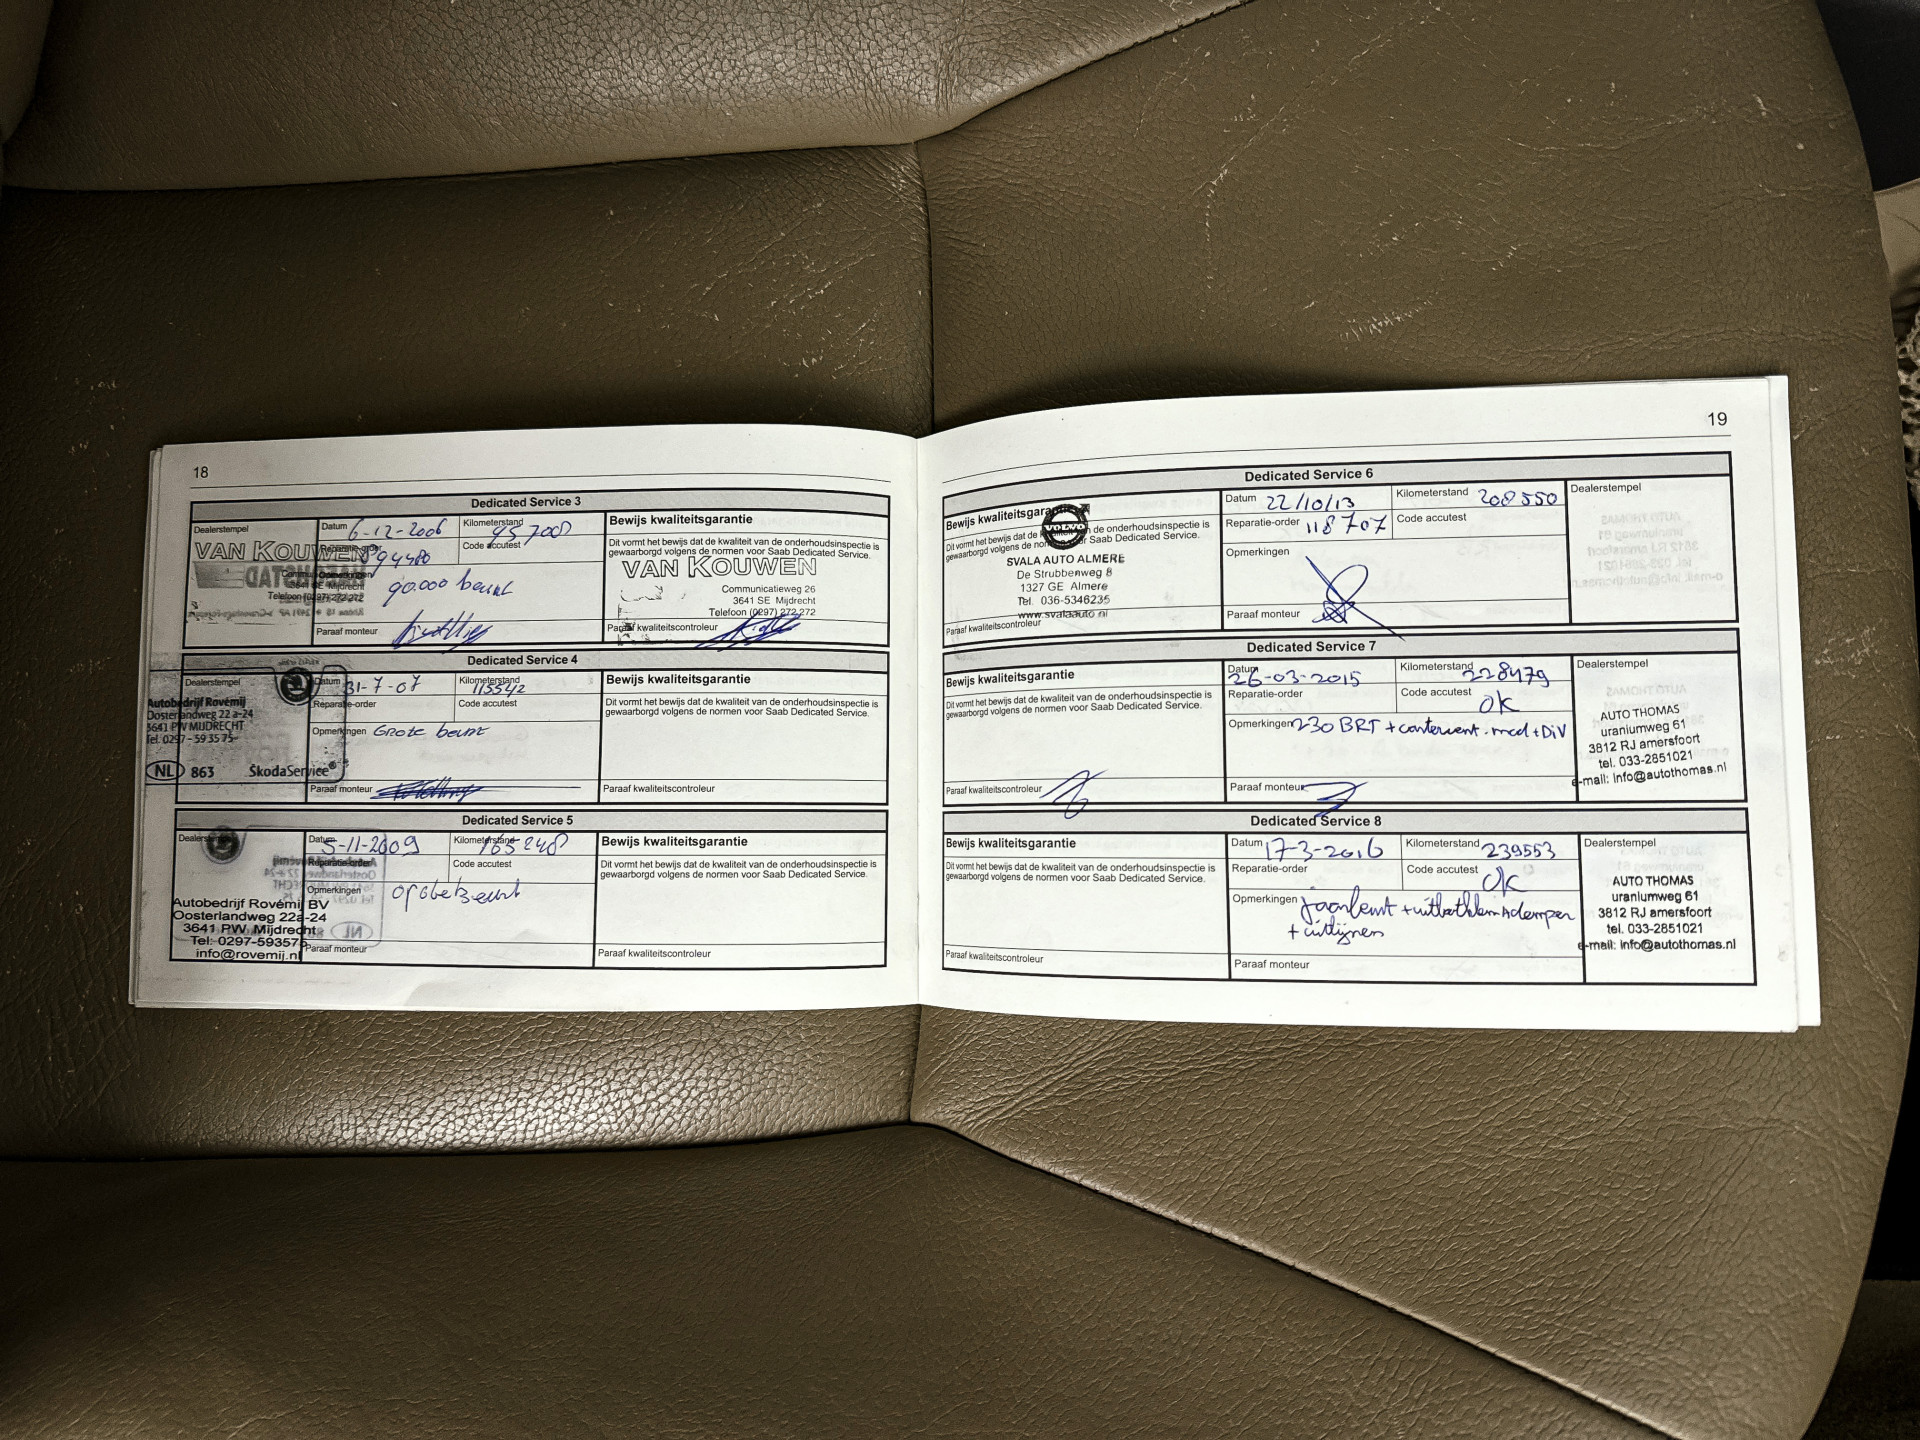 18
Dedicated Service 3
Dealerstempel
VAN KOUWEN
3641 SE Mijdrecht
Telefoon (0297) 272 272
Datum 6-12-2006
Kilometerstand
Reparatie-order 894480
Code accutest
Opmerkingen 90.000 beurt
Paraaf monteur
Bewijs kwaliteitsgarantie
Dit vormt het bewijs dat de kwaliteit van de onderhoudsinspectie is
gewaarborgd volgens de normen voor Saab Dedicated Service.
VAN KOUWEN
Communicatieweg 26
3641 SE Mijdrecht
Telefoon (0297) 272 272
Paraaf kwaliteitscontroleur
Dedicated Service 4
Dealerstempel
Autobedrijf Rovemij
Oosterlandweg 22 a-24
3641 PW MIJDRECHT
Tel. 0297 - 59 35 75
NL 863 ŠkodaService®
Datum 31-7-07
Kilometerstand 115542
Reparatie-order
Code accutest
Opmerkingen Grote beurt
Paraaf monteur
Bewijs kwaliteitsgarantie
Dit vormt het bewijs dat de kwaliteit van de onderhoudsinspectie is
gewaarborgd volgens de normen voor Saab Dedicated Service.
Paraaf kwaliteitscontroleur
Dedicated Service 5
Dealerstempel
Autobedrijf Rovemij BV
Oosterlandweg 22a-24
3641 PW Mijdrecht
Tel: 0297-593575
info@rovemij.nl
Datum 5-11-2009
Kilometerstand
Reparatie-order
Code accutest
Opmerkingen
Paraaf monteur
Bewijs kwaliteitsgarantie
Dit vormt het bewijs dat de kwaliteit van de onderhoudsinspectie is
gewaarborgd volgens de normen voor Saab Dedicated Service.
Paraaf kwaliteitscontroleur
19
Dedicated Service 6
Bewijs kwaliteitsgarantie
Dit vormt het bewijs dat de kwaliteit van de onderhoudsinspectie is
gewaarborgd volgens de normen voor Saab Dedicated Service.
VOLVO
SVALA AUTO ALMERE
De Strubbenweg 8
1327 GE Almere
Tel. 036-5346235
www.svalaauto.nl
Paraaf kwaliteitscontroleur
Datum 22/10/13
Kilometerstand 208550
Reparatie-order 118707
Code accutest
Opmerkingen
Paraaf monteur
Dealerstempel
Dedicated Service 7
Bewijs kwaliteitsgarantie
Dit vormt het bewijs dat de kwaliteit van de onderhoudsinspectie is
gewaarborgd volgens de normen voor Saab Dedicated Service.
Paraaf kwaliteitscontroleur
Datum 26-03-2015
Kilometerstand 228479
Reparatie-order
Code accutest OK
Opmerkingen 230 BRT + + DIV
Paraaf monteur
Dealerstempel
AUTO THOMAS
uraniumweg 61
3812 RJ amersfoort
tel. 033-2851021
e-mail: info@autothomas.nl
Dedicated Service 8
Bewijs kwaliteitsgarantie
Dit vormt het bewijs dat de kwaliteit van de onderhoudsinspectie is
gewaarborgd volgens de normen voor Saab Dedicated Service.
Paraaf kwaliteitscontroleur
Datum 17-3-2016
Kilometerstand 239553
Reparatie-order
Code accutest OK
Opmerkingen
+ uitlijnen
Paraaf monteur
Dealerstempel
AUTO THOMAS
uraniumweg 61
3812 RJ amersfoort
tel. 033-2851021
e-mail: info@autothomas.nl